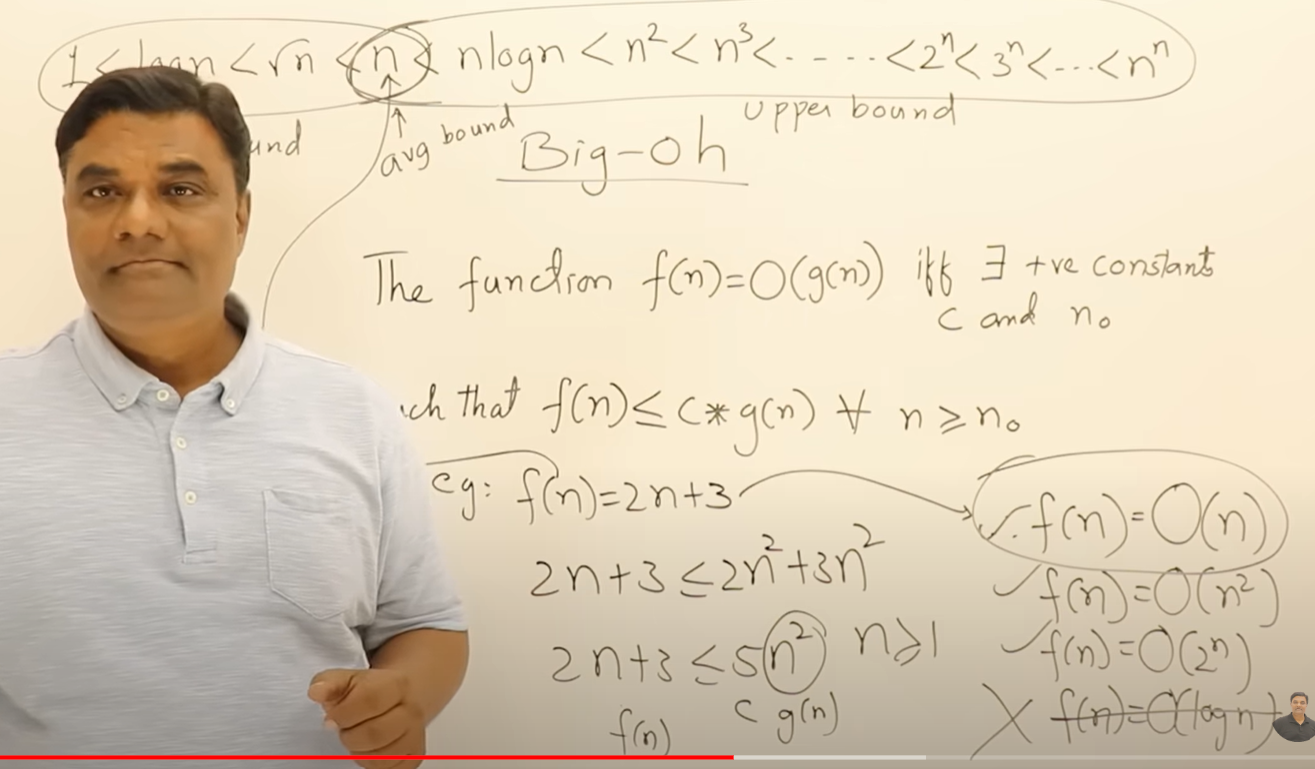 1 < logn < √n < n < nlogn < n² < n³ < - - - - - < 2ⁿ < 3ⁿ < ... < nⁿ
avg bound
upper bound
Big-Oh
The function f(n)=O(g(n)) iff ∃ +ve constants
c and n₀
that f(n) ≤ c*g(n) ∀ n ≥ n₀
eg: f(n)=2n+3
2n+3 ≤ 2n²+3n²
2n+3 ≤ 5n² n ≥ 1
f(n) c g(n)
✓. f(n)=O(n)
✓ f(n)=O(n²)
✓ f(n)=O(2ⁿ)
X f(n)=O(logn)